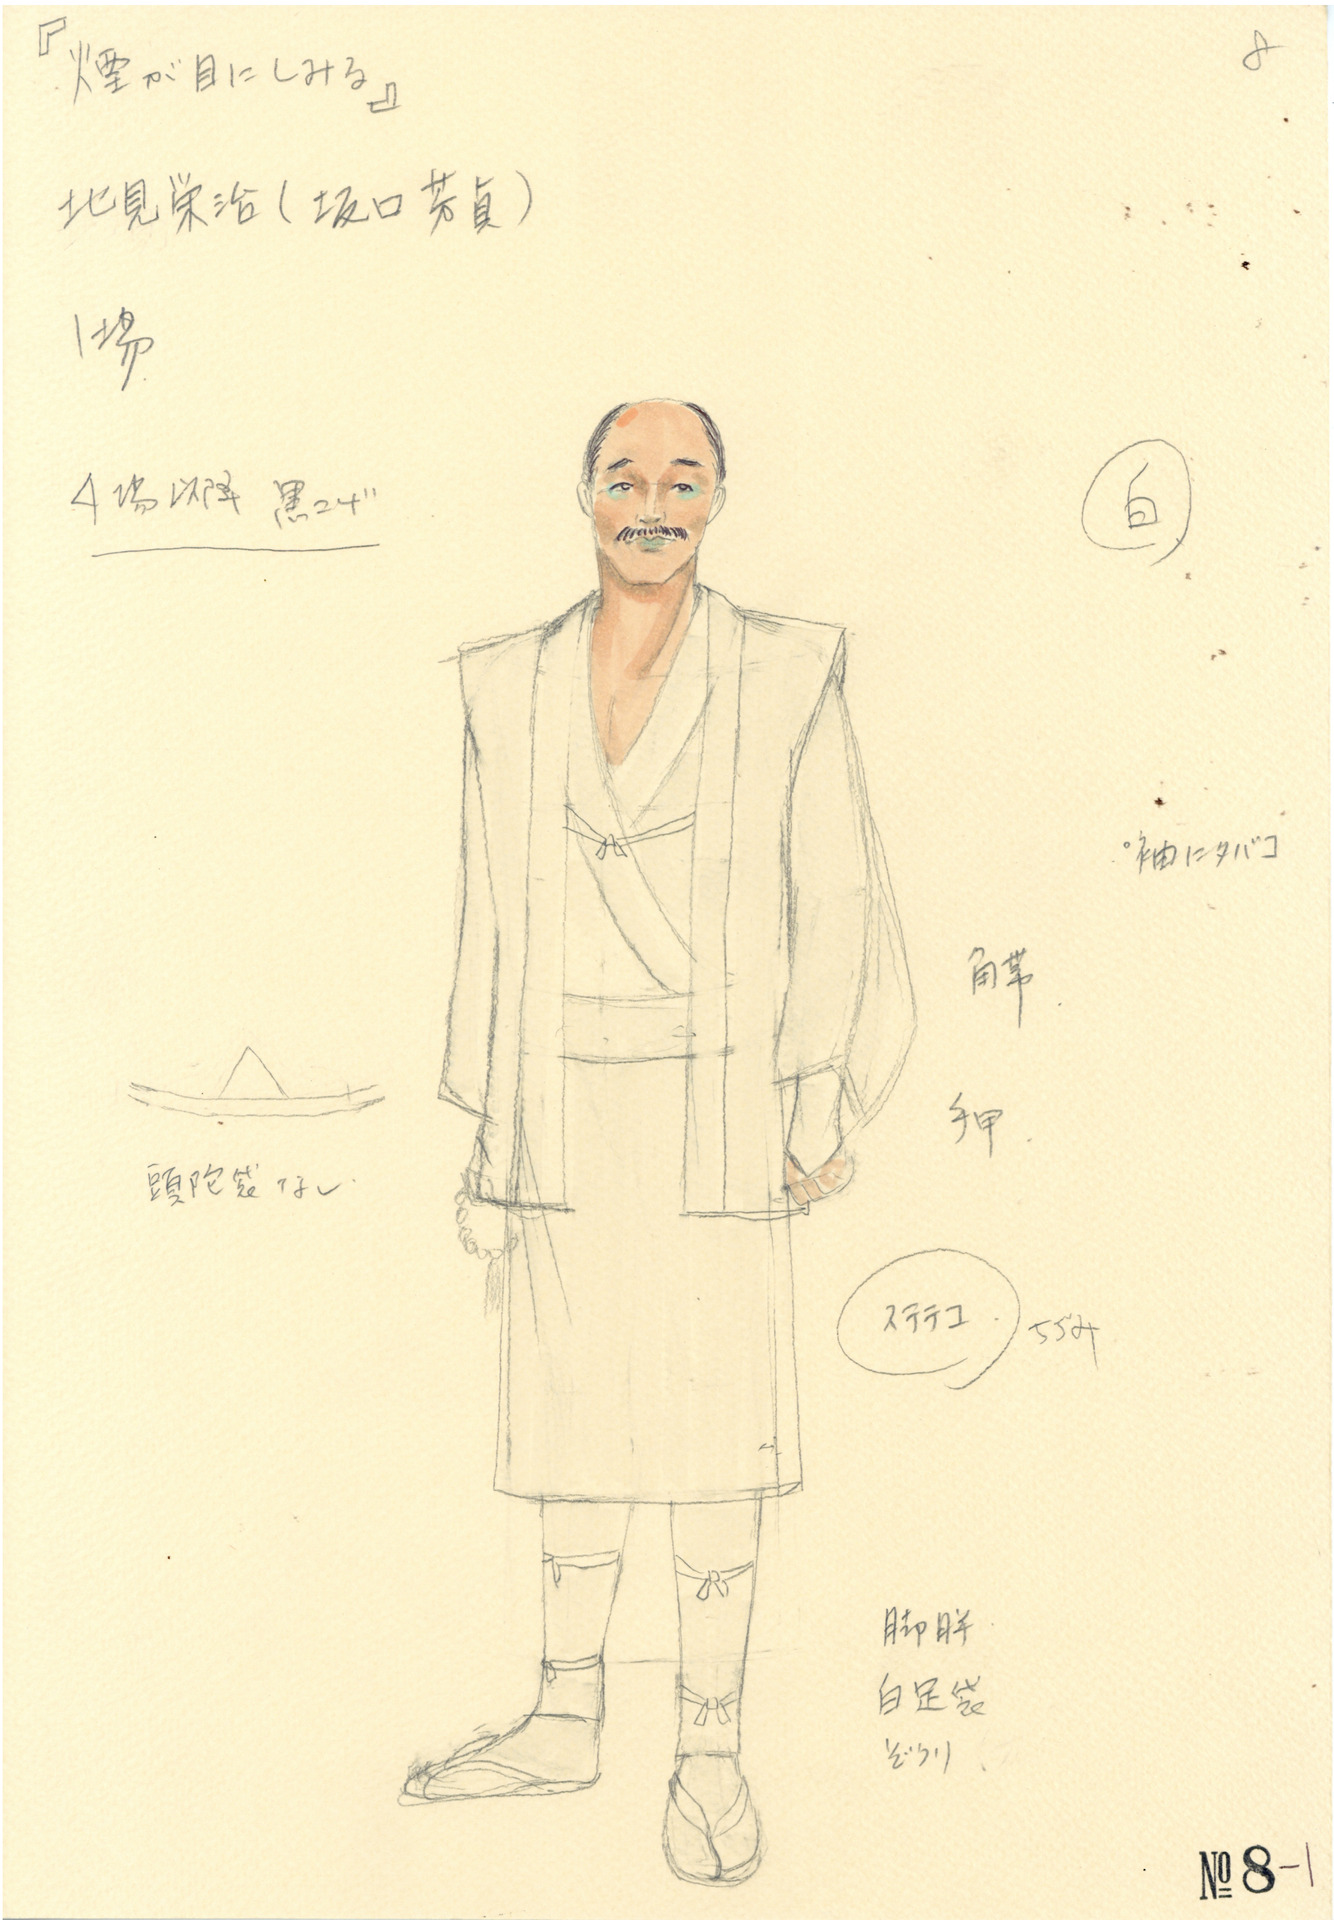 『煙が目にしみる』
8
地見栄治(坂口芳貞)
1場
4場以降 黒コゲ
白
°袖にタバコ
角帯.
手甲.
頭陀袋なし.
ステテコ. ちぢみ
脚胖
白足袋
ぞうり、
№8-1